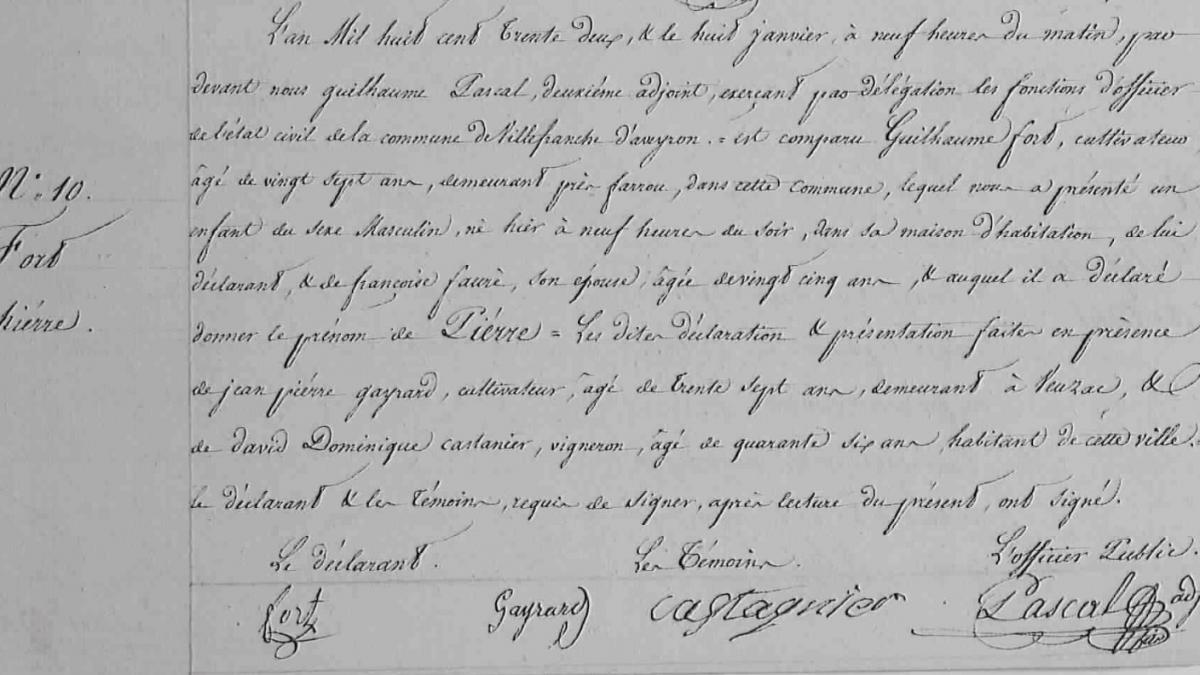 L'an Mil huit cent trente deux, & le huit janvier, à neuf heures du matin, par
devant nous guilhaume Pascal, deuxiéme adjoint, exerçant par délégation les fonctions d'officier
de l'état civil de la commune de Villefranche d'aveyron. = est comparu Guilhaume fort, cultivateur,
N.º 10.
âgé de vingt sept ans, demeurant près farrou, dans cette commune, lequel nous a présenté un
enfant du sexe Masculin, né hier à neuf heures du soir, dans sa maison d'habitation, de lui
Fort
déclarant, & de françoise fauré, son épouse, âgée de vingt cinq ans, & auquel il a déclaré
Piérre.
donner le prénom de Piérre = Les dites déclaration & présentation faites en présence
de jean piérre gayrard, cultivateur, âgé de trente sept ans, demeurant à Veuzac, &
de david Dominique castanier, vigneron, âgé de quarante six ans, habitant de cette ville. =
Le déclarant & les témoins, requis de signer, après lecture du présent, ont signé.
Le déclarant. Les témoins. L'officier Public.
fort Gayrard castagnier Pascal adj